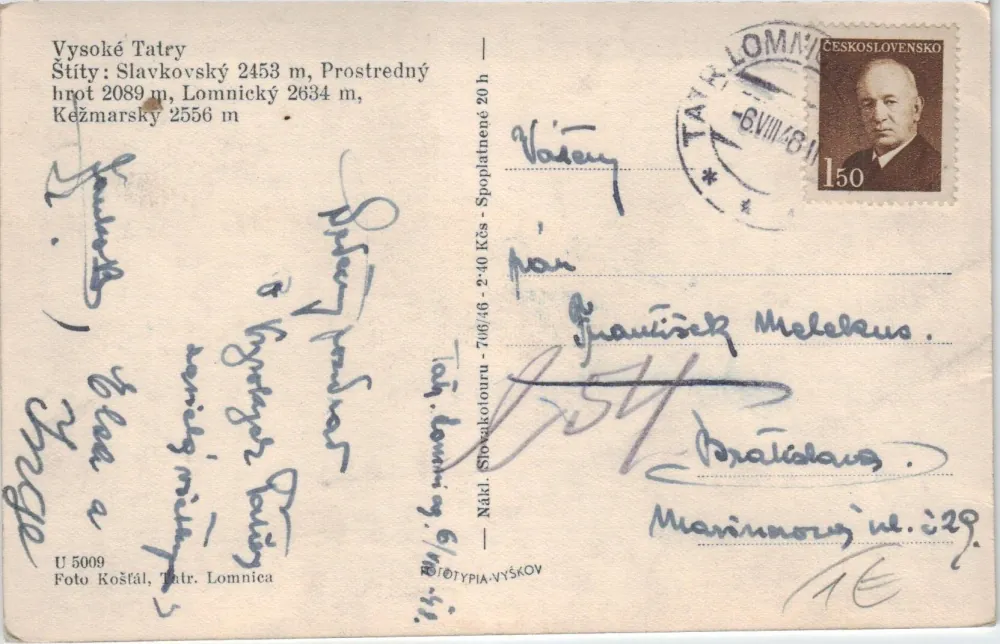 Vysoké Tatry
Štíty: Slavkovský 2453 m, Prostredný
hrot 2089 m, Lomnický 2634 m,
Kežmarský 2556 m
Srdečný pozdrav
z Vysokých Tatier
Elza a
Inge
Tatr. Lomnica, 6/VIII 48.
U 5009
Foto Košťál, Tatr. Lomnica
Nákl. Slovakotouru - 706/46 - 2·40 Kčs - Spoplatnené 20 h
FOTOTYPIA-VYŠKOV
TATR. LOMNIC
-6.VIII.48-11
ČESKOSLOVENSKO
1 50
Vážený
pán
František Melekus.
Bratislava.
ul. č 29.
1€